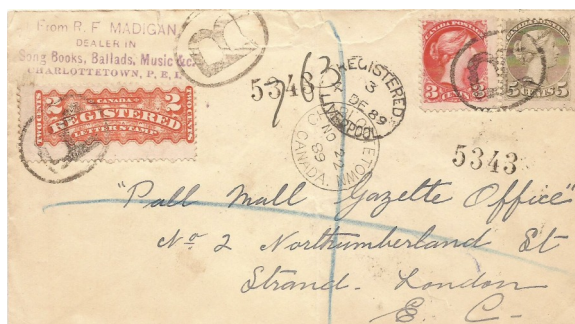 From R. F. MADIGAN,
DEALER IN
Song Books, Ballads, Music &c.
CHARLOTTETOWN, P. E. I.
R
2 CANADA 2
REGISTERED
LETTER STAMP
TWO CENTS TWO CENTS
5343
763
REGISTERED
3
DE 89
LIVERPOOL
NO 22
89
CANADA
CANADA POSTAGE
3 3
5 CENTS 5
5343
"Pall Mall Gazette Office"
No 2 Northumberland St
Strand. London
E. C-